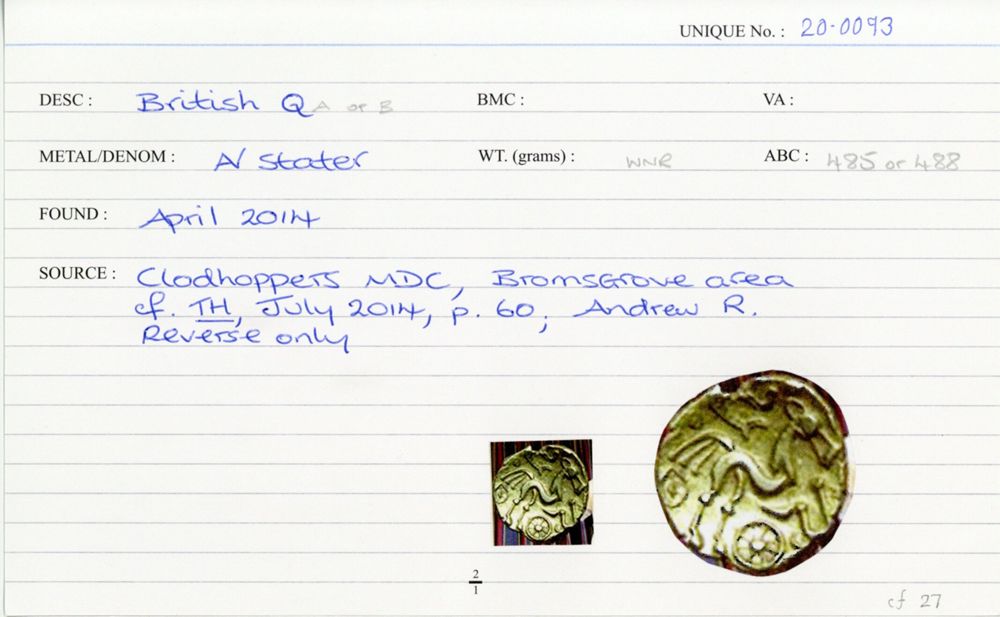 UNIQUE No. : 20-0093
DESC : British Q A or B BMC : VA :
METAL/DENOM : N Stater WT. (grams) : WNR ABC : 485 or 488
FOUND : April 2014
SOURCE : Clodhoppers MDC, Bromsgrove area
cf. TH, July 2014, p. 60, Andrew R.
Reverse only
2
1
cf 27